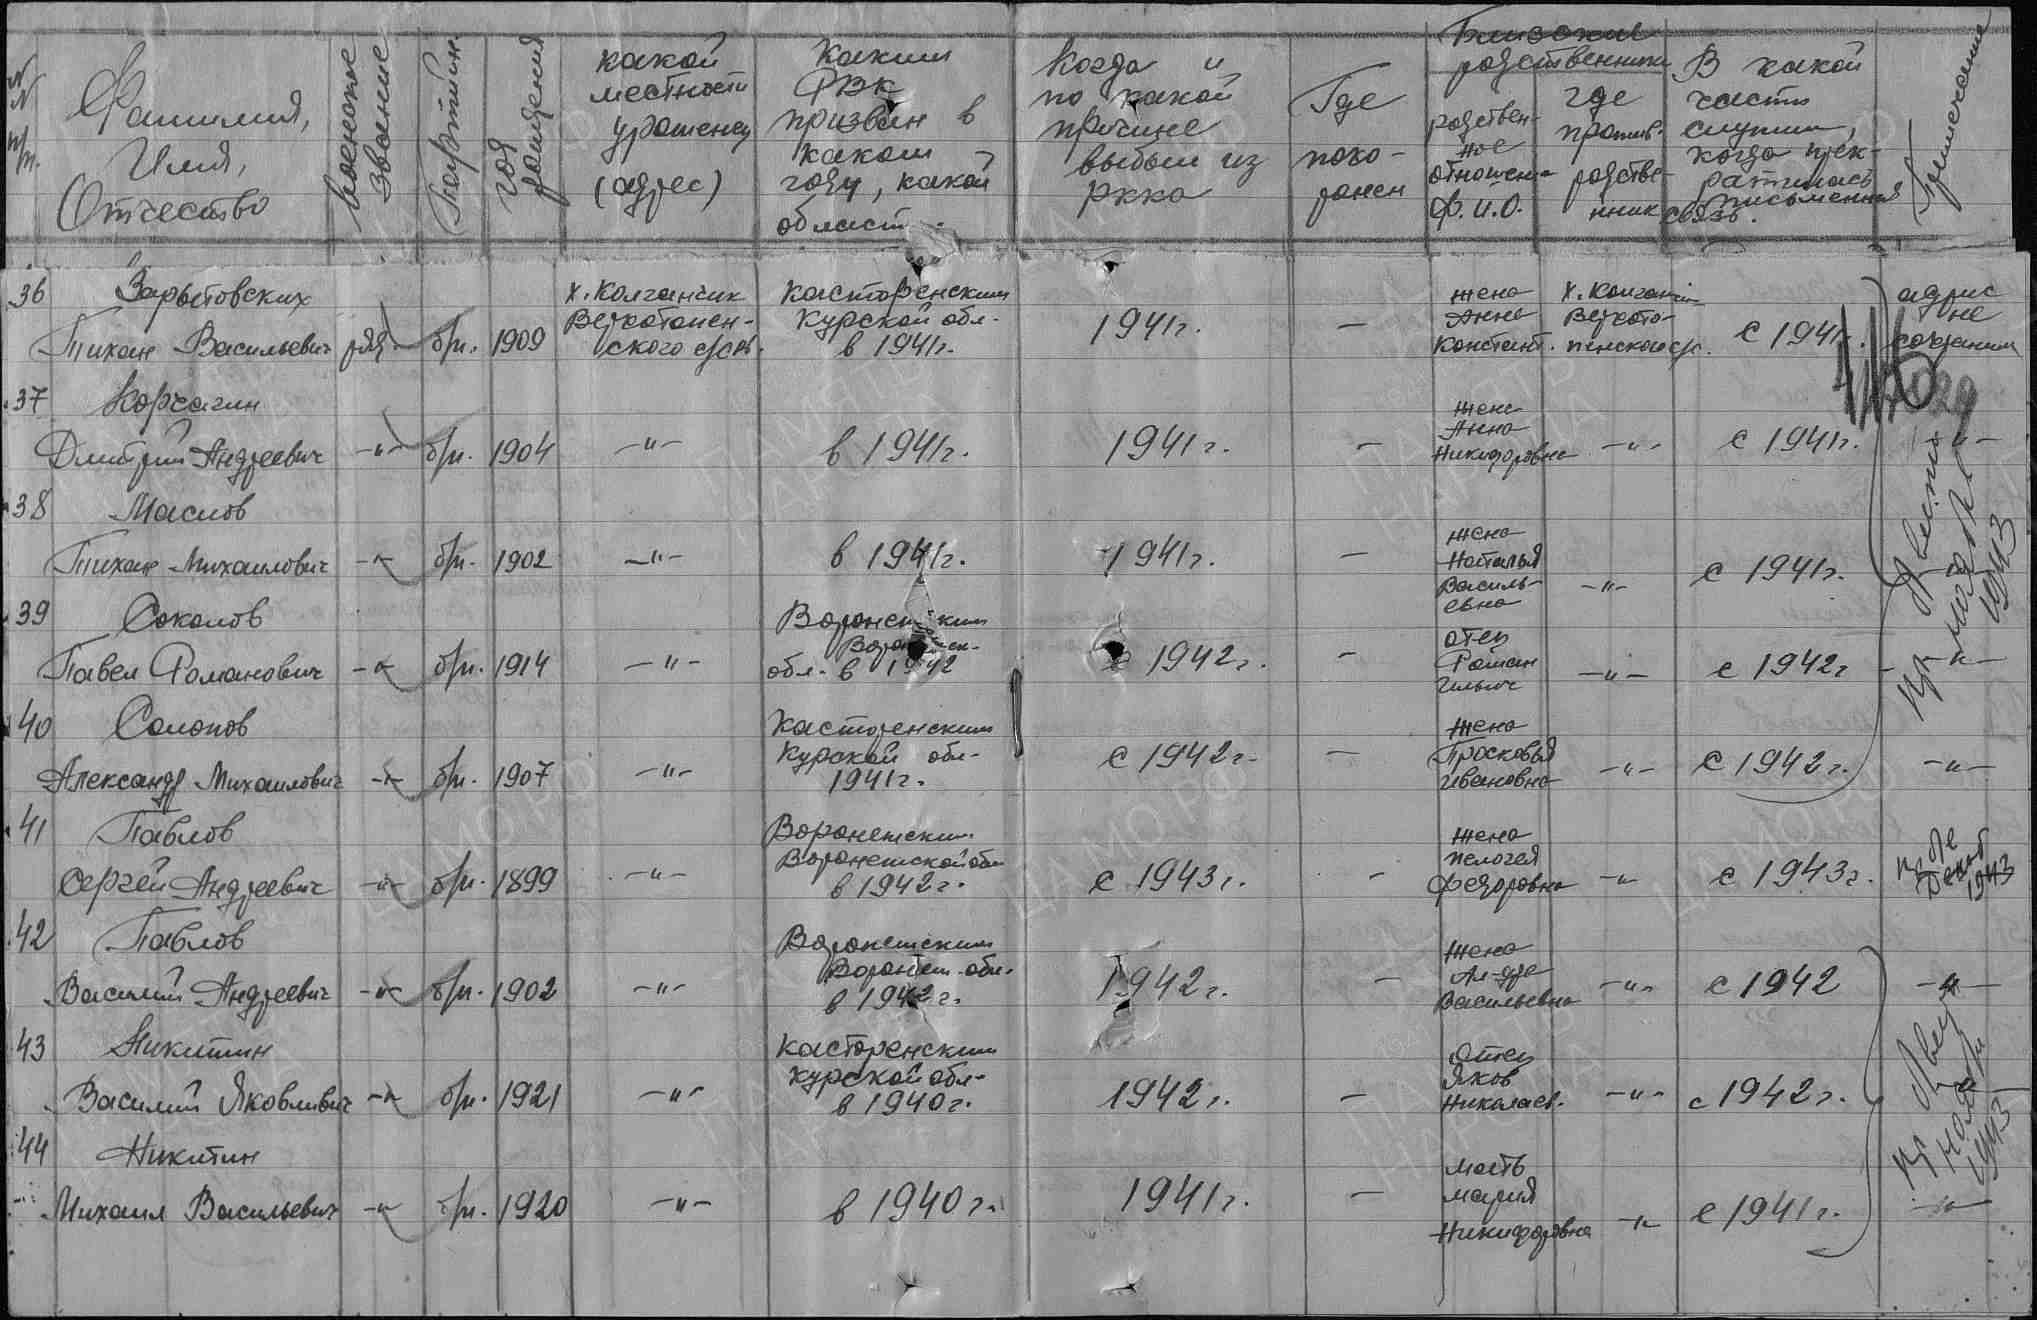 №№ п/п.
Фамилия,
Имя,
Отчество
Военное звание
Партийн.
год рождения
какой
местности
уроженец
(адрес)
Каким
РВК
призван в
каком
году, какой
област.
Когда и
по какой
причине
выбыл из
РККА
Где
похо-
ронен
Близкие
родственники
родствен-
ное
отношение
Ф.И.О.
где
прожив.
родстве-
нник
В какой
части
служил,
когда прек-
ратилась
письменная
связь.
Примечание
36 Зарытовских
Тихон Васильевич ряд. б/п. 1909
х. Колганчик
Верхотопен-
ского с/сов.
Касторенским
Курской обл.
в 1941г.
1941г.
—
жена
Анна
Констант.
х. Колганчик
Верхото-
пенской с/с.
с 1941г.
адрес
не
сохранил
37 Корчагин
Дмитрий Андреевич -"- б/п. 1904 -"- в 1941г. 1941г. —
жена
Анна
Никифоровна -"- с 1941г. -"-
38 Маслов
Тихон Михайлович -"- б/п. 1902 -"- в 1941г. 1941г. —
жена
Наталья
Василь-
евна -"- с 1941г.
39 Соколов
Павел Романович -"- б/п. 1914 -"-
Воронежским
Воронеж.
обл. в 1942
1942г. —
отец
Роман
Ильич -"- с 1942г -"-
40 Солопов
Александр Михайлович -"- б/п. 1907 -"-
Касторенским
Курской обл.
1941г.
с 1942г. —
жена
Прасковья
Ивановна -"- с 1942г. -"-
41 Павлов
Сергей Андреевич -"- б/п. 1899 -"-
Воронежским
Воронежской обл
в 1942г.
с 1943г. -
жена
Пелогея
Федоровна -"- с 1943г.
1943
42 Павлов
Василий Андреевич -"- б/п. 1902 -"-
Воронежским
Воронеж. обл.
в 1942г.
1942г. —
жена
Ал-дра
Васильевна -"- с 1942 -"-
43 Никитин
Василий Яковлевич -"- б/п. 1921 -"-
Касторенским
Курской обл.
в 1940г.
1942г. —
отец
Яков
Николаев. -"- с 1942г.
44 Никитин
Михаил Васильевич -"- б/п. 1920 -"- в 1940г. 1941г. —
мать
Мария
Никифоровна -"- с 1941г. -"-
1943
1943